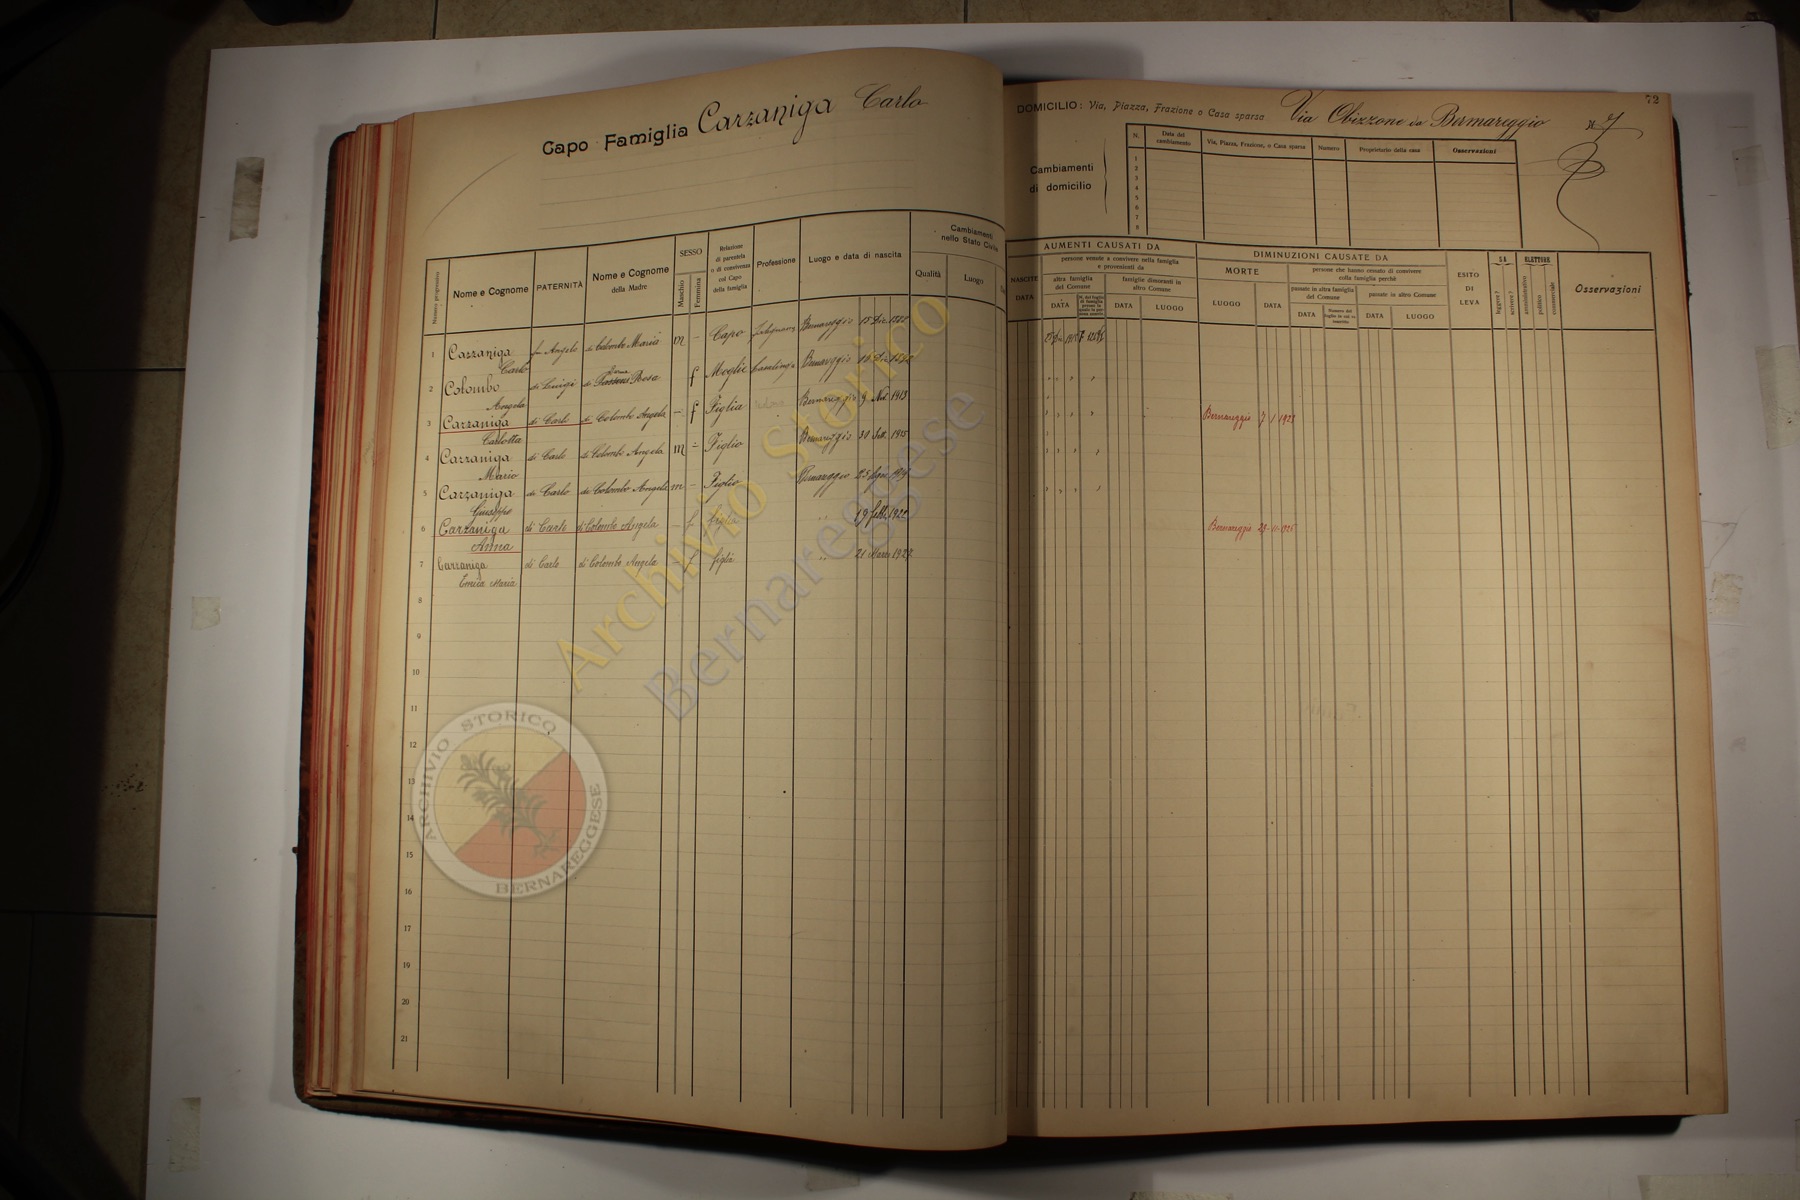 Capo Famiglia Carzaniga Carlo
Numero progressivo
Nome e Cognome
PATERNITÀ
Nome e Cognome della Madre
SESSO
Maschio
Femmina
Relazione di parentela o di convivenza col Capo della famiglia
Professione
Luogo e data di nascita
Cambiamenti nello Stato Civile
Qualità
Luogo
1 Carzaniga Carlo fu Angelo di Colombo Maria m - Capo Bernareggio 15 Dic.
2 Colombo Angela di Luigi di Rosa f Moglie Casalinga Bernareggio
3 Carzaniga Carlotta di Carlo di Colombo Angela - f Figlia Bernareggio 9 1913
4 Carzaniga Mario di Carlo di Colombo Angela m - Figlio Bernareggio 30 Sett. 1915
5 Carzaniga Giuseppe di Carlo di Colombo Angela m - Figlio Bernareggio 25
6 Carzaniga Anna di Carlo di Colombo Angela - f figlia " 19 febb.
7 Carzaniga Maria di Carlo di Colombo Angela f figlia " 21 Marzo 1927
8
9
10
11
12
13
14
15
16
17
19
20
21
72
DOMICILIO: Via, Piazza, Frazione o Casa sparsa Via Obizzone da Bernareggio N. 7
Cambiamenti di domicilio
N.
Data del cambiamento
Via, Piazza, Frazione, o Casa sparsa
Numero
Proprietario della casa
Osservazioni
1
2
3
4
5
6
7
8
AUMENTI CAUSATI DA
NASCITE
DATA
persone venute a convivere nella famiglia e provenienti da
altra famiglia del Comune
DATA
famiglie dimoranti in altro Comune
DATA
LUOGO
DIMINUZIONI CAUSATE DA
MORTE
LUOGO
DATA
persone che hanno cessato di convivere colla famiglia perchè
passate in altra famiglia del Comune
DATA
passate in altro Comune
DATA
LUOGO
ESITO DI LEVA
SA
leggere?
scrivere?
ELETTORE
amministrativo
politico
commerciale
Osservazioni
Bernareggio 7 1 1923
Bernareggio 29-11-925
Archivio Storico
Bernareggese
ARCHIVIO STORICO
BERNAREGGESE